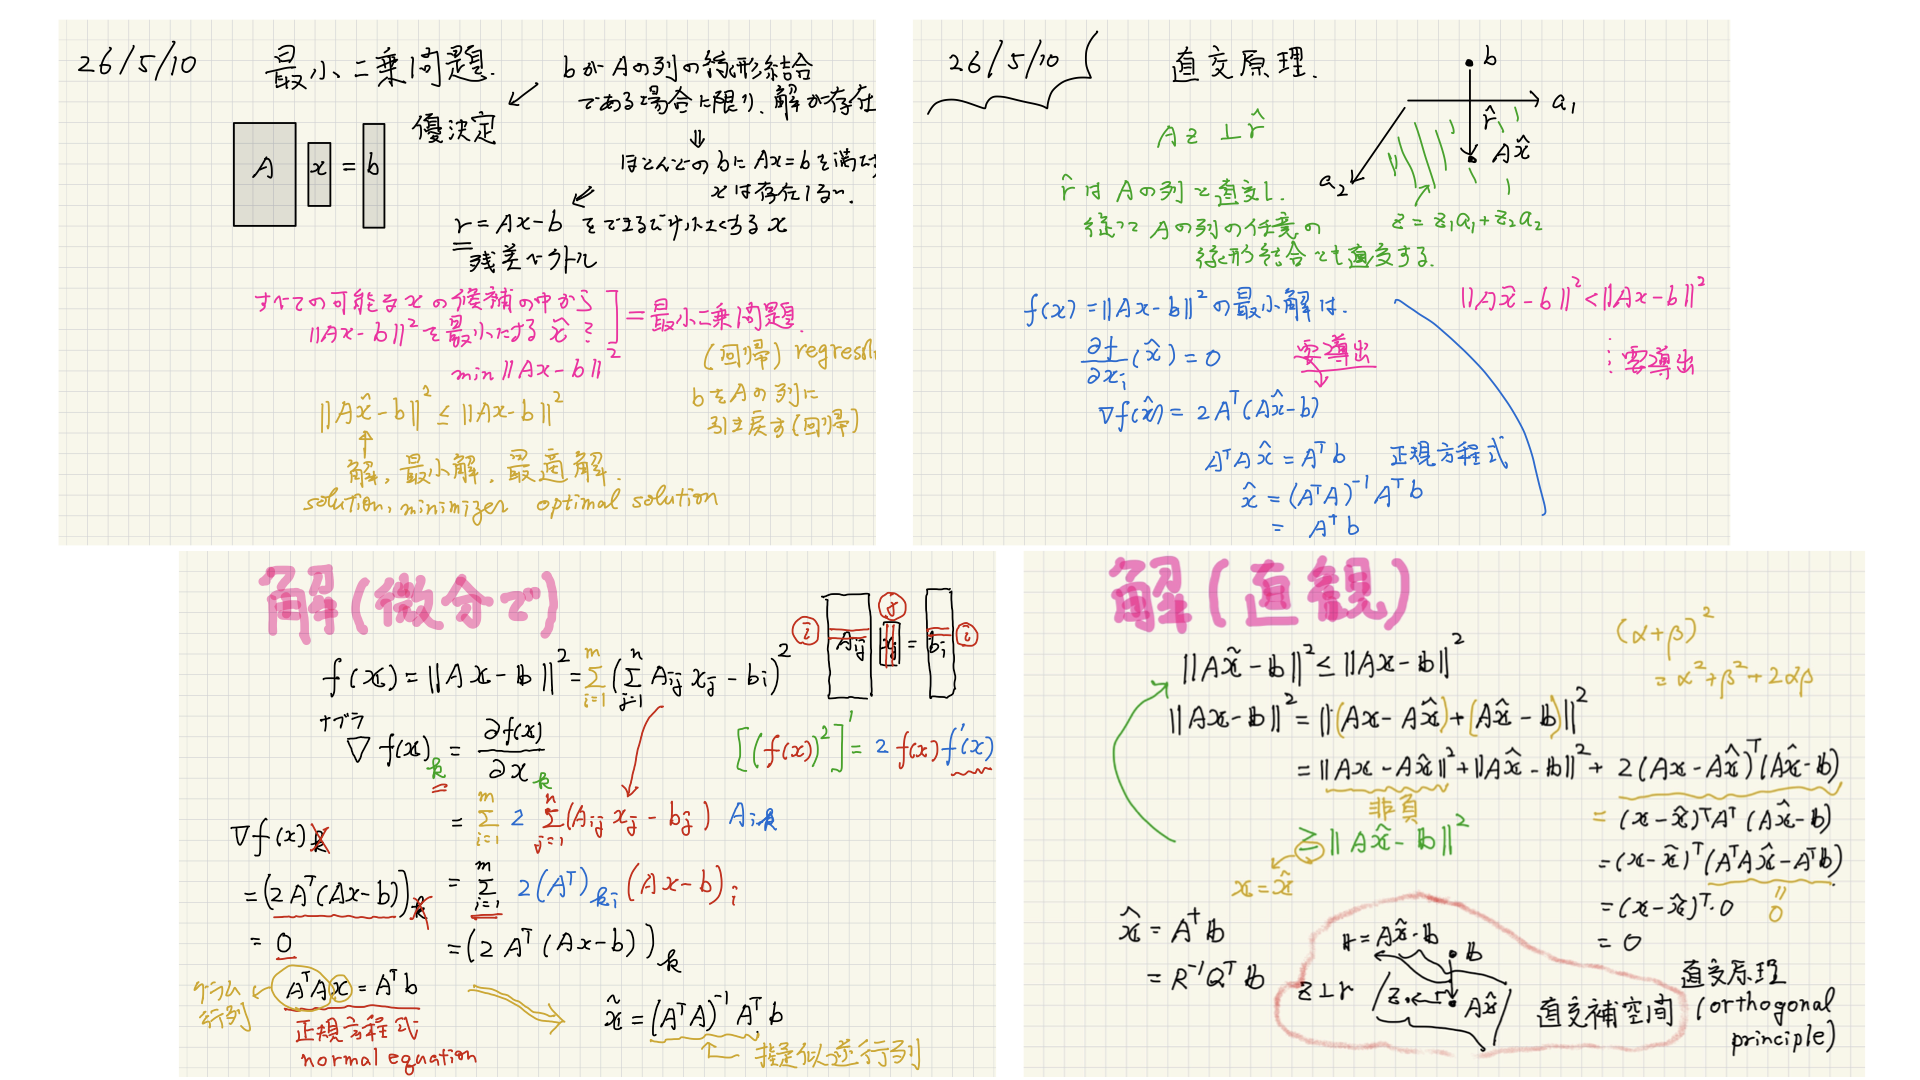 26/5/10
最小二乗問題.
bがAの列の線形結合
である場合に限り、解が存在
優決定
⇓
ほとんどのbにAx=bを満たす
xは存在しない.
A x = b
r = Ax-b をできるだけ小さくする x
残差ベクトル
すべての可能なxの候補の中から
||Ax-b||²を最小にする x̂ ?
= 最小二乗問題.
min ||Ax-b||²
(回帰) regression
bをAの列に
引き戻す(回帰)
||Ax̂-b||² ≤ ||Ax-b||²
解, 最小解, 最適解.
solution, minimizer optimal solution
26/5/10
直交原理.
b
a₁
r̂
Ax̂
a₂
z = z₁a₁+z₂a₂
Az ⊥ r̂
r̂はAの列と直交し.
従ってAの列の任意の
線形結合とも直交する.
f(x) = ||Ax-b||²の最小解は.
||Ax̂-b||² < ||Ax-b||²
∂f/∂xᵢ (x̂) = 0
要導出
⋮要導出
∇f(x̂) = 2Aᵀ(Ax̂-b)
AᵀAx̂ = Aᵀb 正規方程式
x̂ = (AᵀA)⁻¹Aᵀb
= A†b
解(微分で)
i j i
Aij xj = bi
f(x) = ||Ax-b||² = Σ_{i=1}^{m} (Σ_{j=1}^{n} Aij xj - bi)²
ナブラ
∇f(x)k = ∂f(x)/∂xk
[(f(x))²]' = 2 f(x) f'(x)
= Σ_{i=1}^{m} 2 Σ_{j=1}^{n} (Aij xj - bj) Aik
∇f(x)k
= Σ_{i=1}^{m} 2(Aᵀ)ki (Ax-b)i
= (2Aᵀ(Ax-b))k
= (2Aᵀ(Ax-b))k
= 0
グラム
行列
AᵀAx = Aᵀb
正規方程式
normal equation
x̃ = (AᵀA)⁻¹Aᵀb
擬似逆行列
解(直観)
||Ax̃-b||² ≤ ||Ax-b||²
(α+β)²
= α²+β²+2αβ
||Ax-b||² = ||(Ax-Ax̂)+(Ax̂-b)||²
= ||Ax-Ax̂||²+||Ax̂-b||²+ 2(Ax-Ax̂)ᵀ(Ax̂-b)
非負
≥ ||Ax̂-b||²
x=x̂
= (x-x̂)ᵀAᵀ(Ax̂-b)
= (x-x̂)ᵀ(AᵀAx̂-Aᵀb)
= (x-x̂)ᵀ·0
0
= 0
x̂ = A†b
= R⁻¹Qᵀb
r = Ax̂-b
b
z⊥r
z
Ax̂
直交補空間
直交原理
(orthogonal
principle)